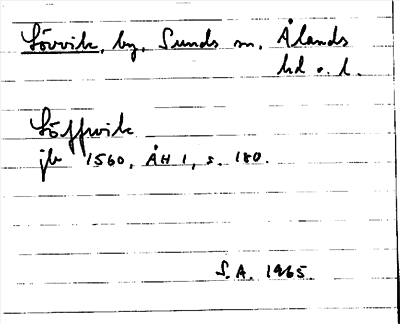 Lövvik, by, Sunds sn. Ålands
hd o. l.
Löffwik
jb 1560, ÅH 1, s. 180.
S.A. 1965